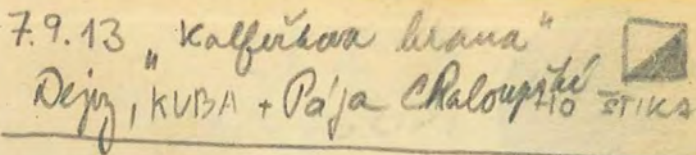 7.9.13 „Kalferkova brana"
Dejz, KUBA + Pája Chaloupští TIO ŠTIKA